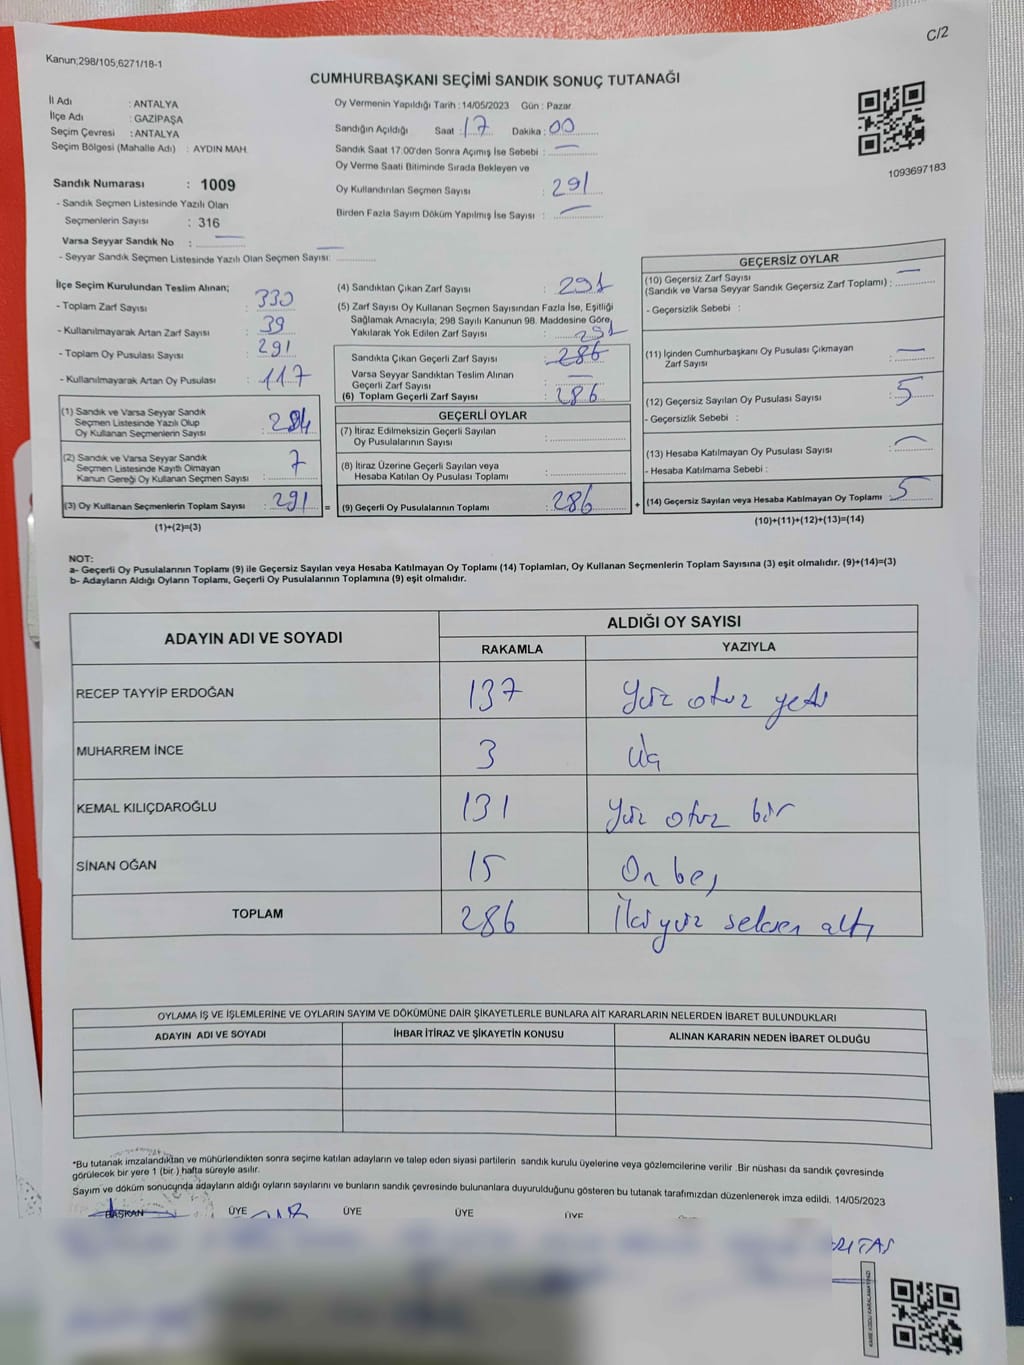 C/2
Kanun;298/105,6271/18-1
CUMHURBAŞKANI SEÇİMİ SANDIK SONUÇ TUTANAĞI
İl Adı : ANTALYA
İlçe Adı : GAZİPAŞA
Seçim Çevresi : ANTALYA
Seçim Bölgesi (Mahalle Adı) : AYDIN MAH.
Sandık Numarası : 1009
- Sandık Seçmen Listesinde Yazılı Olan
Seçmenlerin Sayısı : 316
Varsa Seyyar Sandık No : —
- Seyyar Sandık Seçmen Listesinde Yazılı Olan Seçmen Sayısı: —
Oy Vermenin Yapıldığı Tarih : 14/05/2023 Gün : Pazar
Sandığın Açıldığı Saat : 17 Dakika : 00
Sandık Saat 17:00'den Sonra Açımış İse Sebebi : —
Oy Verme Saati Bitiminde Sırada Bekleyen ve
Oy Kullandırılan Seçmen Sayısı : 291
Birden Fazla Sayım Döküm Yapılmış İse Sayısı : —
1093697183
İlçe Seçim Kurulundan Teslim Alınan;
- Toplam Zarf Sayısı : 330
- Kullanılmayarak Artan Zarf Sayısı : 39
- Toplam Oy Pusulası Sayısı : 291
- Kullanılmayarak Artan Oy Pusulası : 117
(1) Sandık ve Varsa Seyyar Sandık
Seçmen Listesinde Yazılı Olup
Oy Kullanan Seçmenlerin Sayısı : 284
(2) Sandık ve Varsa Seyyar Sandık
Seçmen Listesinde Kayıtlı Olmayan
Kanun Gereği Oy Kullanan Seçmen Sayısı : 7
(3) Oy Kullanan Seçmenlerin Toplam Sayısı : 291 =
(1)+(2)=(3)
(4) Sandıktan Çıkan Zarf Sayısı : 291
(5) Zarf Sayısı Oy Kullanan Seçmen Sayısından Fazla İse, Eşitliği
Sağlamak Amacıyla, 298 Sayılı Kanunun 98. Maddesine Göre,
Yakılarak Yok Edilen Zarf Sayısı : 291
Sandıkta Çıkan Geçerli Zarf Sayısı : 286
Varsa Seyyar Sandıktan Teslim Alınan
Geçerli Zarf Sayısı : —
(6) Toplam Geçerli Zarf Sayısı : 286
GEÇERLİ OYLAR
(7) İtiraz Edilmeksizin Geçerli Sayılan
Oy Pusulalarının Sayısı :
(8) İtiraz Üzerine Geçerli Sayılan veya
Hesaba Katılan Oy Pusulası Toplamı :
(9) Geçerli Oy Pusulalarının Toplamı : 286 +
GEÇERSİZ OYLAR
(10) Geçersiz Zarf Sayısı
(Sandık ve Varsa Seyyar Sandık Geçersiz Zarf Toplamı) : —
- Geçersizlik Sebebi :
(11) İçinden Cumhurbaşkanı Oy Pusulası Çıkmayan
Zarf Sayısı : —
(12) Geçersiz Sayılan Oy Pusulası Sayısı : 5
- Geçersizlik Sebebi :
(13) Hesaba Katılmayan Oy Pusulası Sayısı : —
- Hesaba Katılmama Sebebi :
(14) Geçersiz Sayılan veya Hesaba Katılmayan Oy Toplamı : 5
(10)+(11)+(12)+(13)=(14)
NOT:
a- Geçerli Oy Pusulalarının Toplamı (9) ile Geçersiz Sayılan veya Hesaba Katılmayan Oy Toplamı (14) Toplamları, Oy Kullanan Seçmenlerin Toplam Sayısına (3) eşit olmalıdır. (9)+(14)=(3)
b- Adayların Aldığı Oyların Toplamı, Geçerli Oy Pusulalarının Toplamına (9) eşit olmalıdır.
ADAYIN ADI VE SOYADI ALDIĞI OY SAYISI
RAKAMLA YAZIYLA
RECEP TAYYİP ERDOĞAN 137 Yüz otuz yedi
MUHARREM İNCE 3 üç
KEMAL KILIÇDAROĞLU 131 Yüz otuz bir
SİNAN OĞAN 15 On beş
TOPLAM 286 İkiyüz seksen altı
OYLAMA İŞ VE İŞLEMLERİNE VE OYLARIN SAYIM VE DÖKÜMÜNE DAİR ŞİKAYETLERLE BUNLARA AİT KARARLARIN NELERDEN İBARET BULUNDUKLARI
ADAYIN ADI VE SOYADI İHBAR İTİRAZ VE ŞİKAYETİN KONUSU ALINAN KARARIN NEDEN İBARET OLDUĞU
*Bu tutanak imzalandıktan ve mühürlendikten sonra seçime katılan adayların ve talep eden siyasi partilerin sandık kurulu üyelerine veya gözlemcilerine verilir .Bir nüshası da sandık çevresinde
görülecek bir yere 1 (bir.) hafta süreyle asılır.
Sayım ve döküm sonucunda adayların aldığı oyların sayılarını ve bunların sandık çevresinde bulunanlara duyurulduğunu gösteren bu tutanak tarafımızdan düzenlenerek imza edildi. 14/05/2023
BAŞKAN ÜYE ÜYE ÜYE ÜYE